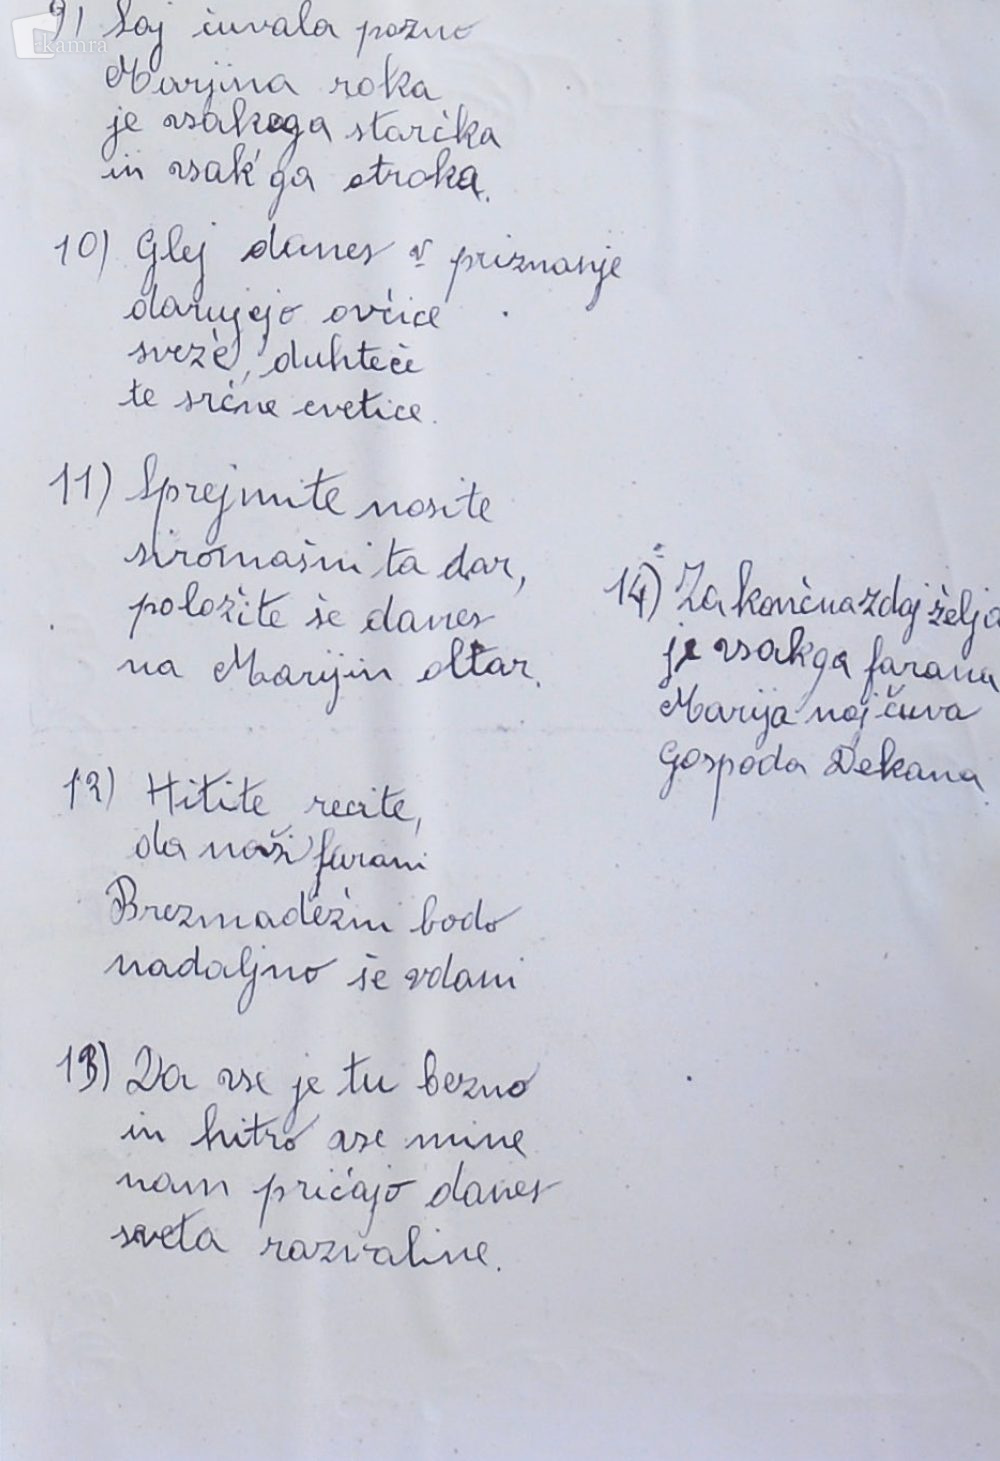 kamra
9) Saj čuvala pozno
Marjina roka
je vsakega starčka
in vsak'ga otroka.
10) Glej danes v priznanje
darujejo ovčice
sveže, duhteče
te srčne cvetice.
11) Sprejmite nosite
siromašni ta dar,
položite še danes
na Marijin oltar.
12) Hitite recite,
da naši farani
Brezmadežni bodo
nadaljno še vdani
13) Da vse je tu bežno
in hitro vse mine
nam pričajo danes
sveta razvaline.
14) Za končna zdaj želja
je vsakga farana
Marija naj čuva
Gospoda Dekana